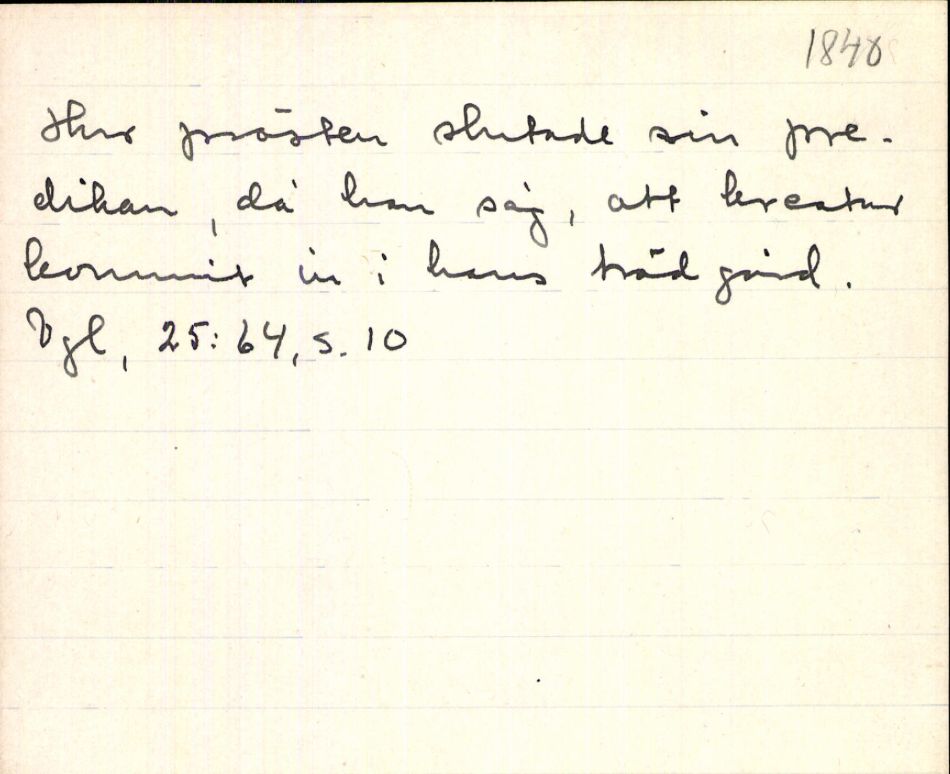 1840
Hur prosten slutade sin pre-
dikan, då han såg, att kreatur
kommit in i hans trädgård.
Vgl, 25:64, s. 10